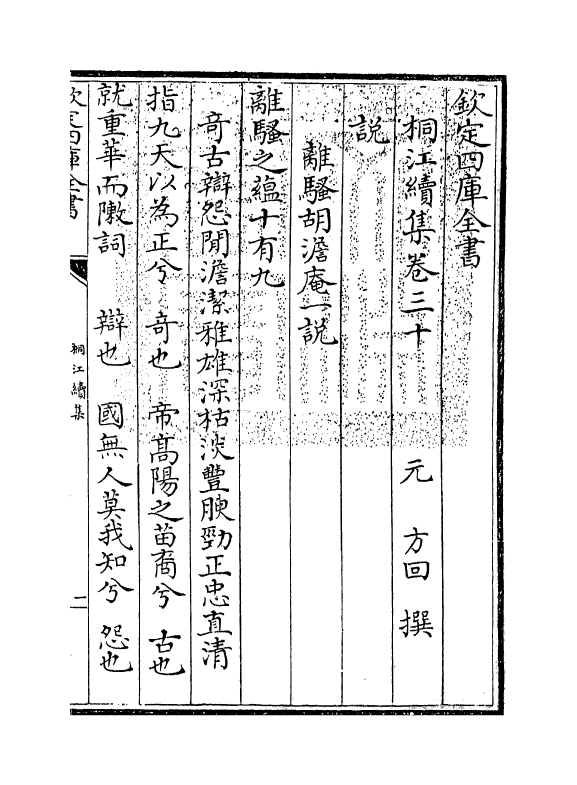 欽定四庫全書
桐江續集卷三十
元 方回 撰
說
離騷胡澹庵一說
離騷之蘊十有九
奇古辯怨閒澹潔雅雄深枯淡豐腴勁正忠直清
指九天以為正兮 奇也 帝髙陽之苗裔兮 古也
就重華而敶詞 辯也 國無人莫我知兮 怨也
欽定四庫全書
桐江續集
二